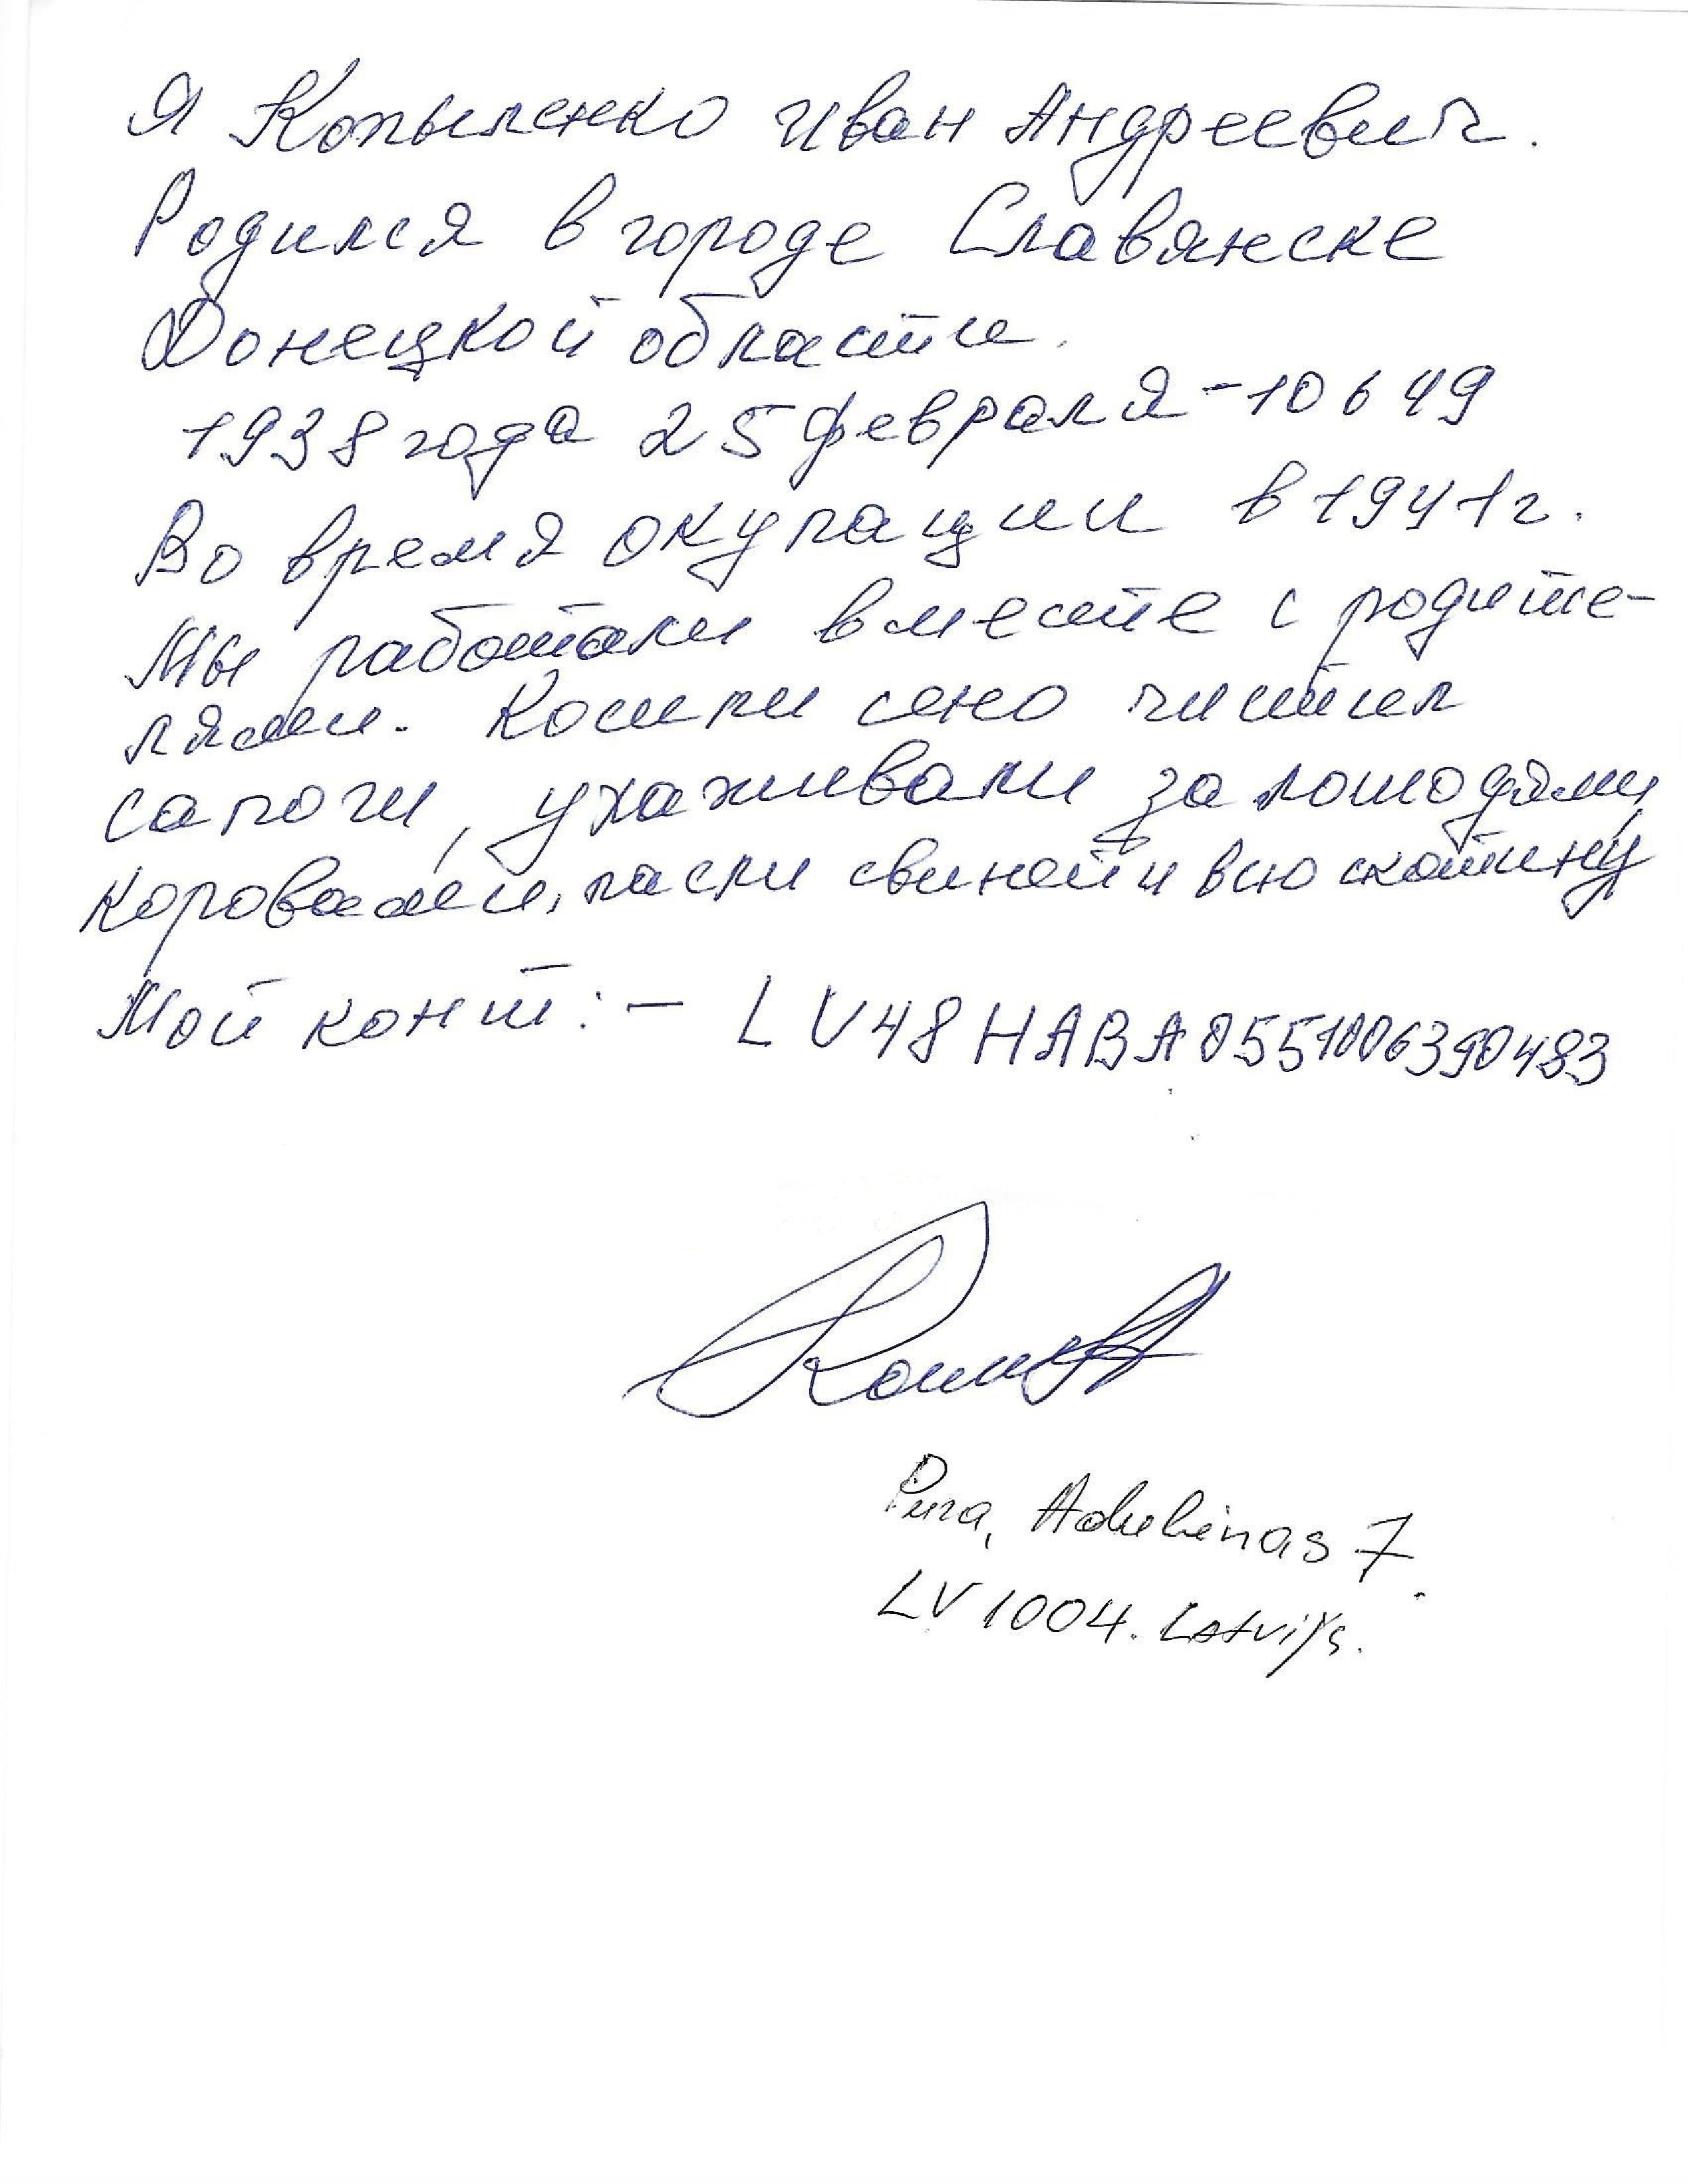 Я Копыленко Иван Андреевич.
Родился в городе Славянске
Донецкой области.
1938 года 25 февраля - 10649
Во время окупации в 1941г.
Мы работали вместе с родите-
лями. Косили сено чистил
сапоги, ухаживали за лошодями,
коровами, пасли свиней и всю скотину
Мой конт: - LV48HABA0551006390483
LV 1004. Latvija.